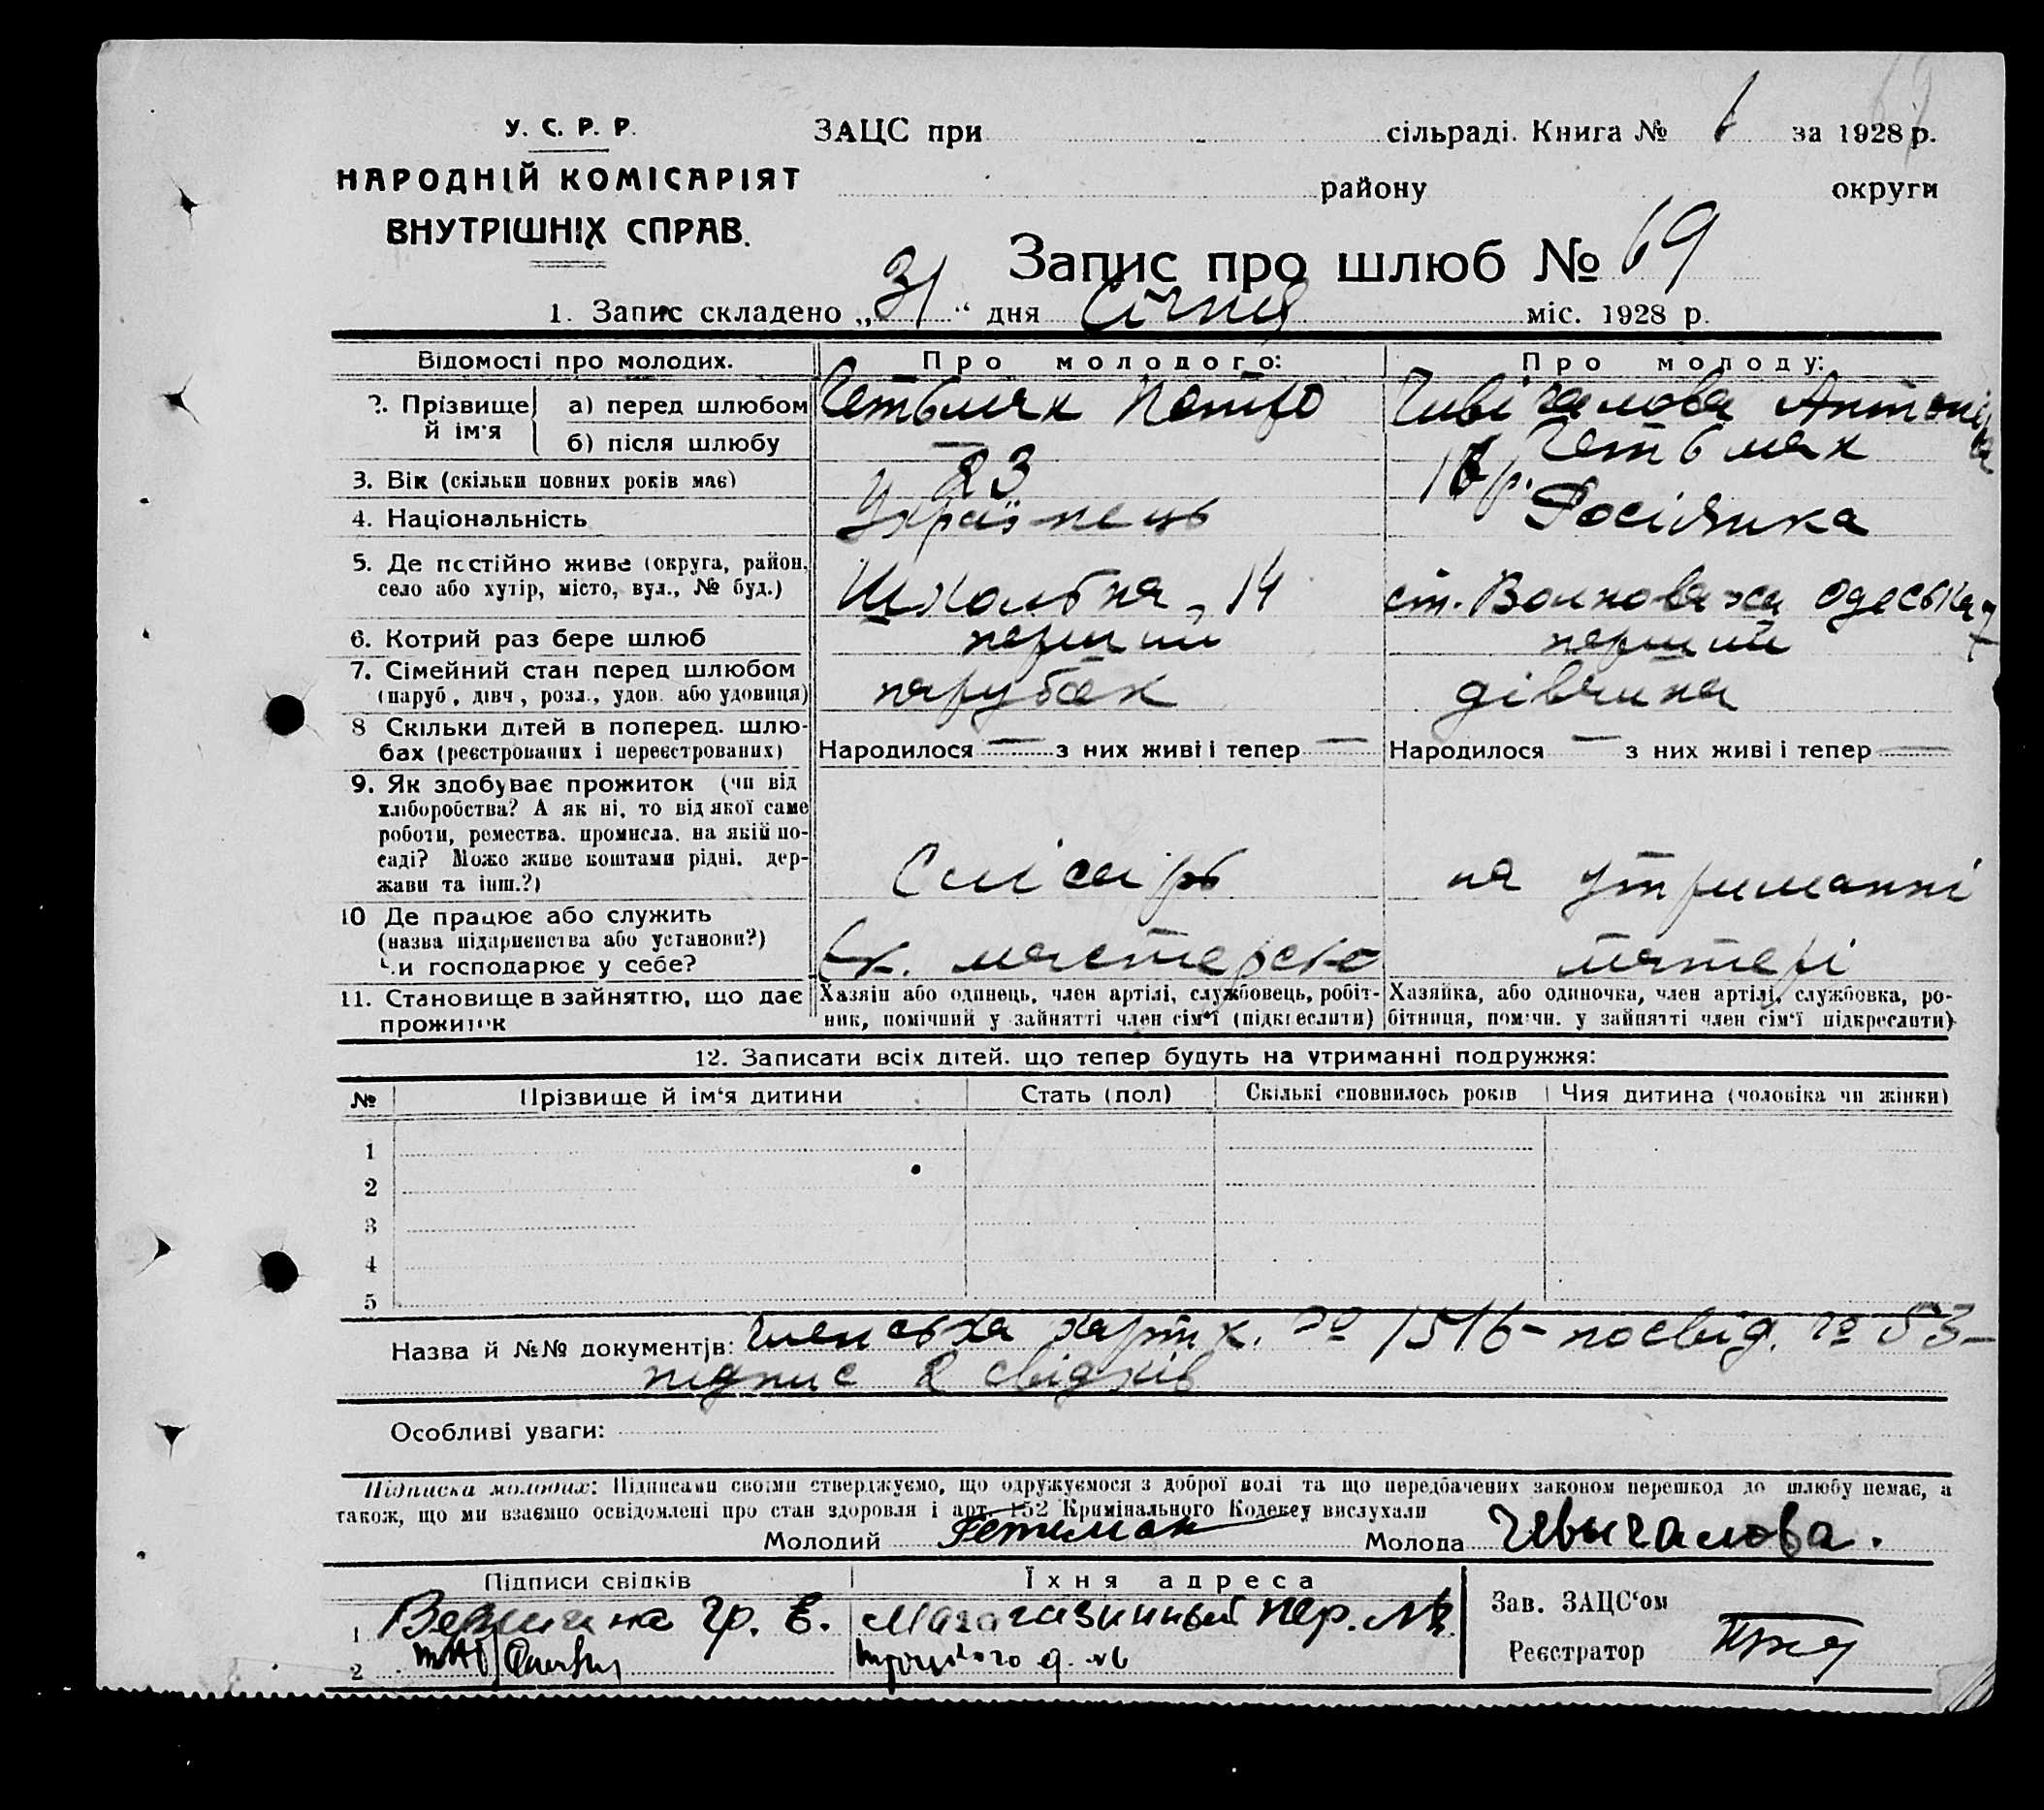 У. С. Р. Р.
НАРОДНІЙ КОМІСАРІЯТ
ВНУТРІШНІХ СПРАВ.
ЗАЦС при сільраді. Книга № 1 за 1928 р.
району округи
Запис про шлюб № 69
1. Запис складено „31“ дня Січня міс. 1928 р.
Відомості про молодих. Про молодого: Про молоду:
2. Прізвище й ім'я
а) перед шлюбом Гетьман Петро Чивічалова Антоніна
б) після шлюбу — Гетьман
3. Вік (скільки повних років має) 23
4. Національність Українець Росіянка
5. Де постійно живе (округа, район, село або хутір, місто, вул., № буд.) Школьна, 14 ст. Волноваха Одеська
6. Котрий раз бере шлюб перший перший
7. Сімейний стан перед шлюбом парубак дівчина
(паруб, дівч, розл., удов. або удовиця)
8 Скільки дітей в поперед. шлю-
бах (реєстрованих і нереєстрованих) Народилося — з них живі і тепер — Народилося — з них живі і тепер —
9. Як здобуває прожиток (чи від
хліборобства? А як ні, то від якої саме
роботи, ремества, промисла, на якій по-
саді? Може живе коштами рідні, дер-
жави та інш.?) Слісарь на утриманні
10 Де працює або служить
(назва підприємства або установи?)
Чи господарює у себе? матері
11. Становище в зайняттю, що дає прожиток
Хазяїн або одинець, член артілі, службовець, робіт-
ник, помічний у зайнятті член сім'ї (підкреслити)
Хазяйка, або одиночка, член артілі, службовка, ро-
бітниця, помічн. у зайнятті член сім'ї підкреслити)
12. Записати всіх дітей, що тепер будуть на утриманні подружжя:
№ Прізвище й ім'я дитини Стать (пол) Скількі сповнилось років Чия дитина (чоловіка чи жінки)
1
2
3
4
5
Назва й №№ документів: Членська картк. № 1516 – посвід. № 53 –
підпис 2 свідків
Особливі уваги:
Підписка молодих: Підписами своїми стверджуємо, що одружуємося з доброї волі та що передбачених законом перешкод до шлюбу немає, а
також, що ми взаємно освідомлені про стан здоровля і арт. 152 Кримінального Кодексу вислухали
Молодий Гетьман Молода Чивычалова.
Підписи свідків Їхня адреса
1 Гр. Е. Магазинный пер. №
2
Зав. ЗАЦС'ом
Реєстратор